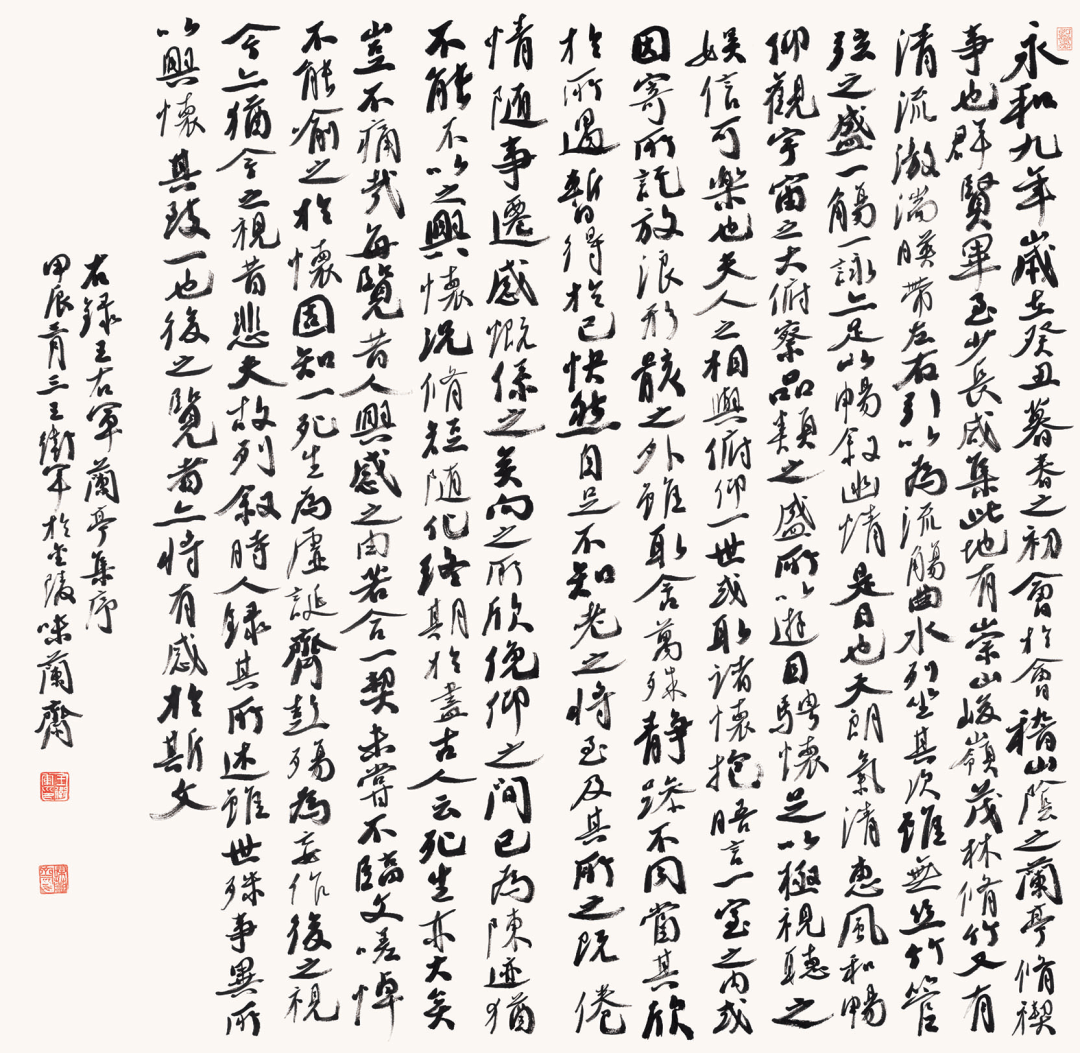 永和九年歲在癸丑暮春之初會於會稽山陰之蘭亭脩禊
事也群賢畢至少長咸集此地有崇山峻嶺茂林脩竹又有
清流激湍暎帶左右引以為流觴曲水列坐其次雖無絲竹管
弦之盛一觴一詠亦足以暢叙幽情是日也天朗氣清惠風和暢
仰觀宇宙之大俯察品類之盛所以遊目騁懷足以極視聽之
娛信可樂也夫人之相與俯仰一世或取諸懷抱晤言一室之內或
因寄所託放浪形骸之外雖取舍萬殊靜躁不同當其欣
於所遇暫得於己快然自足不知老之將至及其所之既倦
情隨事遷感慨係之矣向之所欣俛仰之間已為陳迹猶
不能不以之興懷況脩短隨化終期於盡古人云死生亦大矣
豈不痛哉每覽昔人興感之由若合一契未嘗不臨文嗟悼
不能喻之於懷固知一死生為虛誕齊彭殤為妄作後之視
今亦猶今之視昔悲夫故列叙時人錄其所述雖世殊事異所
以興懷其致一也後之覽者亦將有感於斯文
右錄王右軍蘭亭集序
甲辰三月三王衛軍於金陵味蘭齋